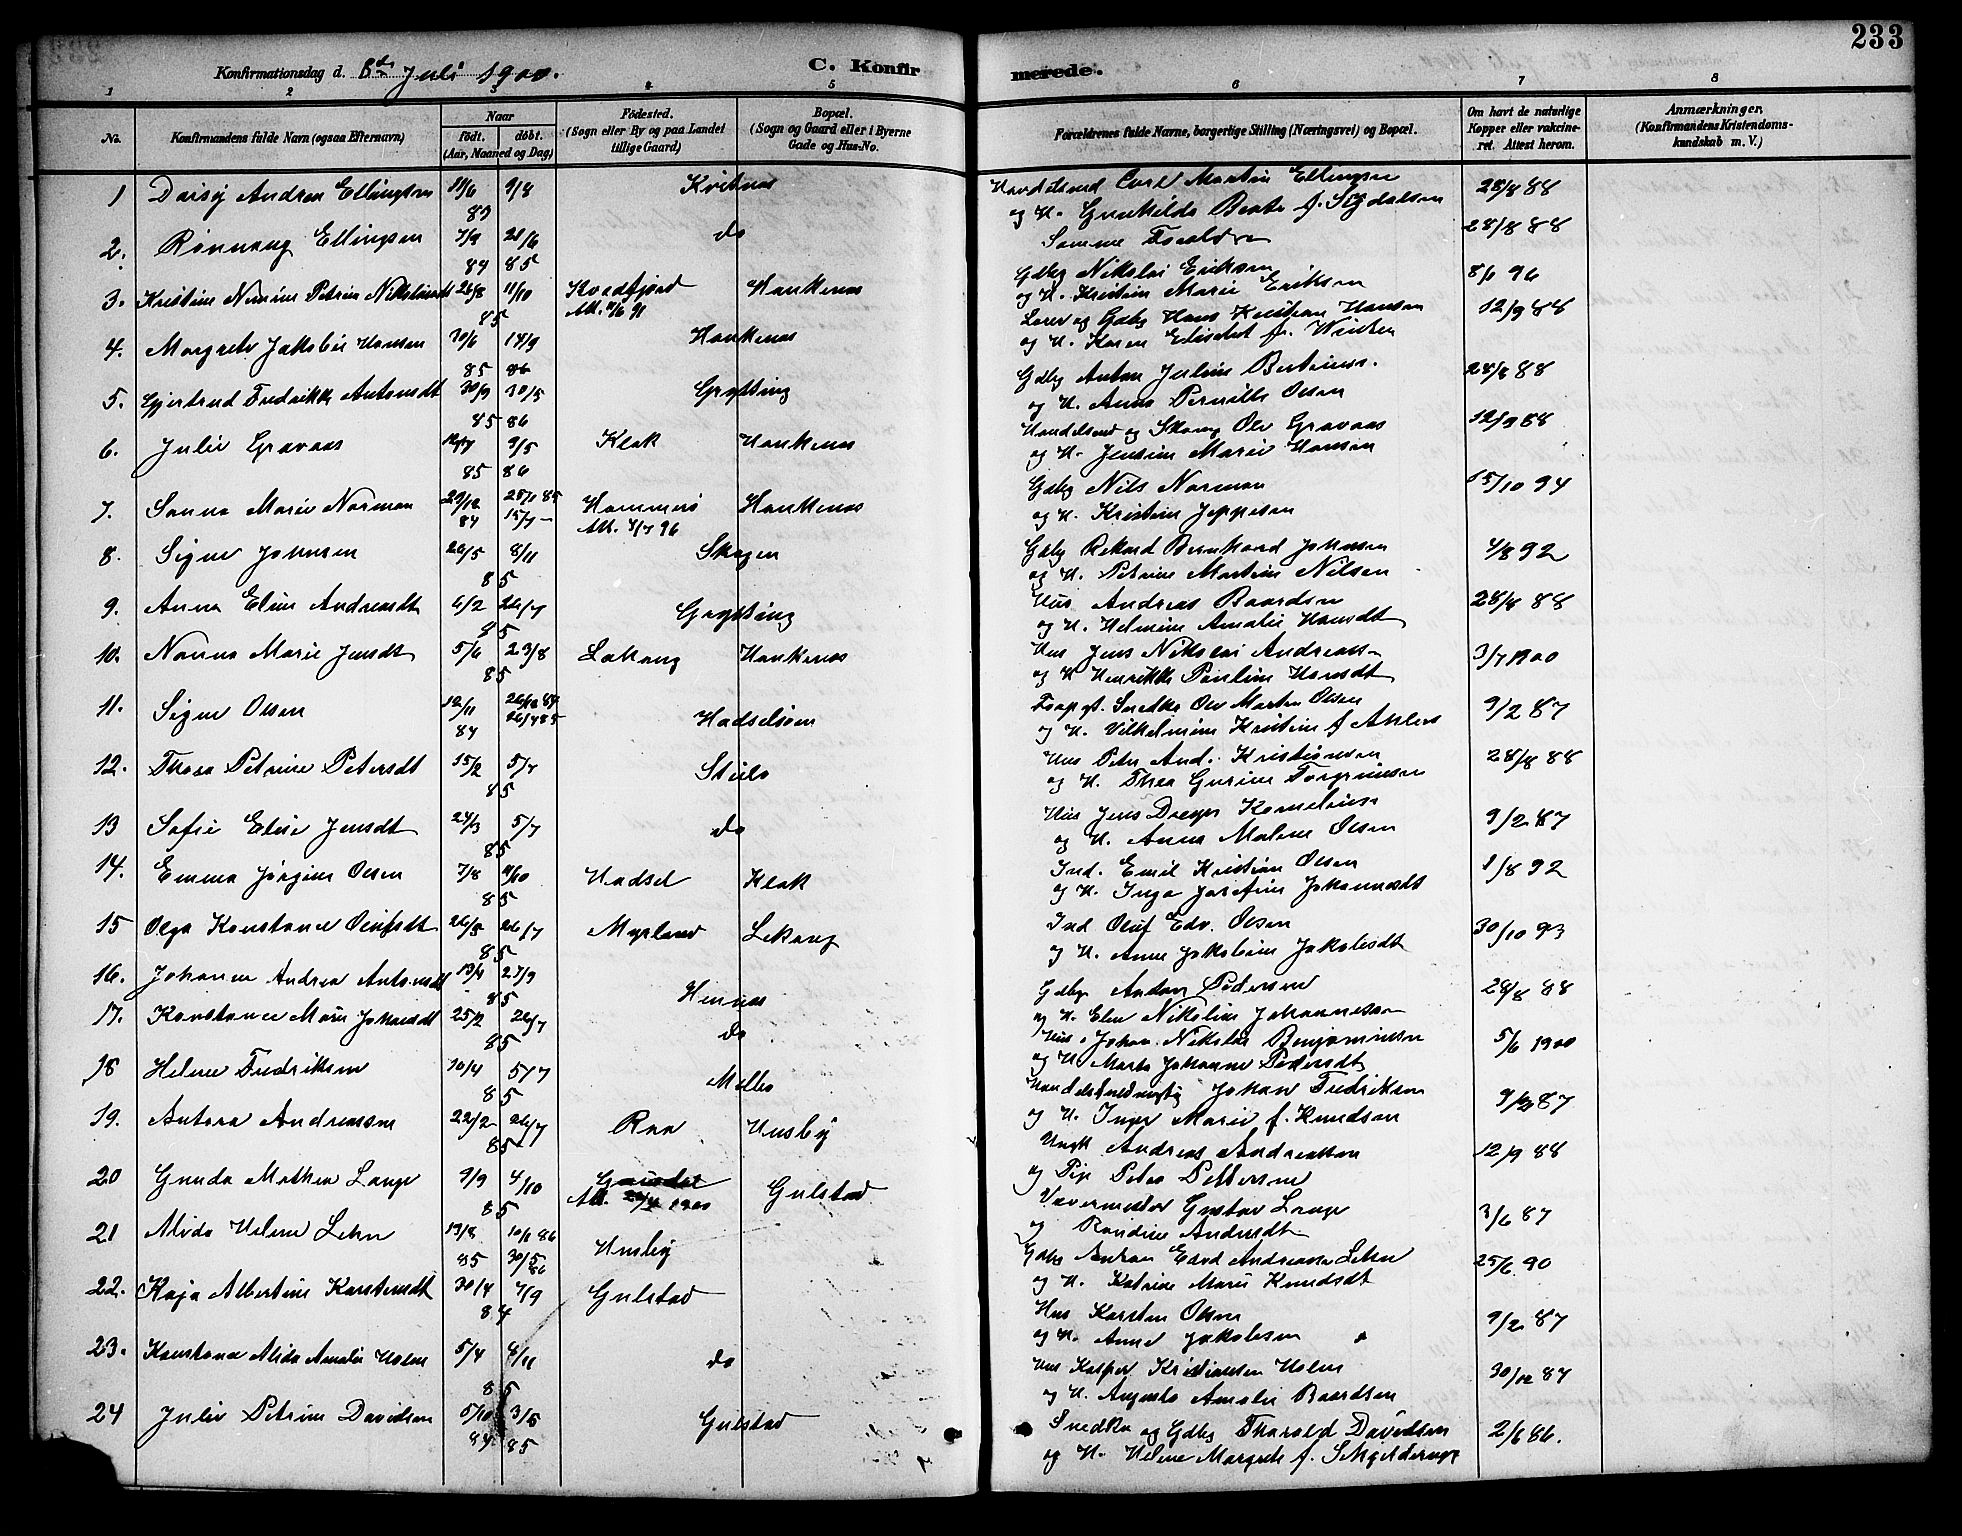 233
Konfirmationsdag d. 8de Juli 1900. C. Konfirmerede.
1 2 3 4 5 6 7 8
No. Konfirmandens fulde Navn (ogsaa Efternavn) Naar født. døbt. (Aar, Maaned og Dag) Fødested. (Sogn eller By og paa Landet tillige Gaard) Bopæl. (Sogn og Gaard eller i Byerne Gade og Hus-No. Forældrenes fulde Navne, borgerlige Stilling (Næringsvei) og Bopæl. Om havt de naturlige Kopper eller vakcineret. Attest herom. Anmærkninger, (Konfirmandens Kristendomskundskab m. V.)
1 Daisy Andrea Ellingsen 11/6 9/8 Kvitnes Handelsmd Carl Martin Ellingsen 28/8 88
og H. Gunhilda Beate f. Sigdalsen
2. Rønnaug Ellingsen 7/9 84 21/6 85 do Samme Forældre 28/8 88
3. Kristine Nimine Petrine Nikolaisdt 26/8 11/10 85 Kvedfjord Att. 11/6 91 Haukenes Gdbg Nikolai Eriksen 8/1 96
og H. Kristine Marie Eriksen
4. Margrete Jakobie Hansen 30/6 85 14/9 86 Haukenes Lærer og Gdbg Hans Kristian Hansen 12/9 88
og H. Karen Elisabet f. Winter
5. Gjertrud Fredrikke Antonsdt 30/9 85 30/5 86 Grytting Gdbg Anton Julius Bertinus. 28/8 88
og H. Anna Pernille Olsen
6. Julie Gravaas 85 9/5 86 Klak Haukenes Handelsmd og Skomg Ole Gravaas 12/9 88
og H. Jensine Marie Hansen
7. Sanna Marie Norman 29/12 84 25/1 85 15/7 — Hammerø Att. 4/7 96 Haukenes Gdbg Nils Norman 15/10 94
og H. Kristine Jeppesen
8. Signe Johnsen 26/5 8/11 85 Skagen Gdbg Rikard Bernhard Johnsen 4/8 92
og H. Petrine Martine Nilsen
9. Anna Eline Andreasdt 6/2 26/7 85 Grytting Hus Andreas Baardsen 28/8 88
og H. Helmine Amalie Hansdt
10. Nanna Marie Jensdt 5/6 23/8 85 Lekang Haukenes Hus Jens Nikolai Andreass. 3/7 1900
og H Henrikke Pauline Hansdt
11. Signe Olsen 12/11 84 26/12 84 26/4 85 Hadseløen Forpgt. Snedker Ole Morten Olsen 9/2 87
og H. Vilhelmine Kristine f Ahlers
12. Thora Petrine Petersdt 15/2 5/7 85 Stile Hus Peter And. Kristiansen 28/8 88
og H. Thea Gurine Torgrimsen
13 Sofie Elise Jensdt 24/3 5/7 85 do Hus Jens Dreyer Korneliuss 9/2 87
og H. Anna Malene Olsen
14. Emma Jørgine Olsen 7/8 85 Hadsel Klak Ind. Emil Kristian Olsen 1/8 92
og H. Inga Josefine Johannesdt
15 Olga Konstance Olufsdt 26/5 26/7 85 Myrland Lekang Ind Oluf Edv. Olsen 30/10 93
og H. Anne Jakobine Jakobsdt
16. Johanna Andrea Antonsdt 19/4 27/9 85 Hennes Gdbg Anton Pedersen 28/8 88
og H. Elen Nikoline Johannesen
17. Konstance Marie Johansdt 25/2 26/7 85 do Hus Johan Nikolai Benjaminsen 5/6 1900
og H Marta Johanne Pedersdt
18 Helene Fredriksen 10/4 5/7 85 Melbo Johan Fredriksen 9/2 87
og H. Inger Marie f. Knudsen
19. Antora Andreassen 22/2 26/7 85 Raa Husby Ungk Andreas Andreassen 12/9 88
og Pige Petra Pettersen
20 Gunda Mathea Lange 9/9 4/10 85 Att. 24/4 1900 Gulstad Vævermester Gustav Lange 3/6 87
og Randine Andersdt
21 Alvida Helene Lehn 19/8 85 10/1 86 30/5 86 Husby Gdbg Anton Edvd Andreassen Lehn 25/6 90
og H. Katrine Marie Knudsdt
22. Kaja Albertine Karstensdt 30/4 7/9 84 Gulstad Hus Karsten Olsen 9/2 87
og H. Anne Jakobsen
23. Konstance Alida Amalie Holm 5/4 8/11 85 do Hus Kasper Kristiansen Holm 30/12 87
og H. Augusta Amalie Baardsen
24 Julie Petrine Davidsen 5/10 84 3/5 85 Gulstad Snedker og Gdbg Tharald Davidsen 2/6 86.
og H. Helene Margrete f. Schjelderup